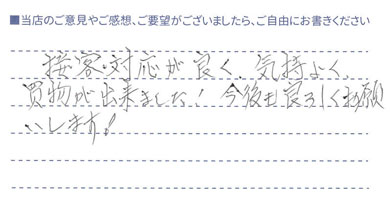 ■当店のご意見やご感想、ご要望がございましたら、ご自由にお書きください
接客・対応が良く、気持よく、
買物が出来ました！今後も良ろしくお願
いします！